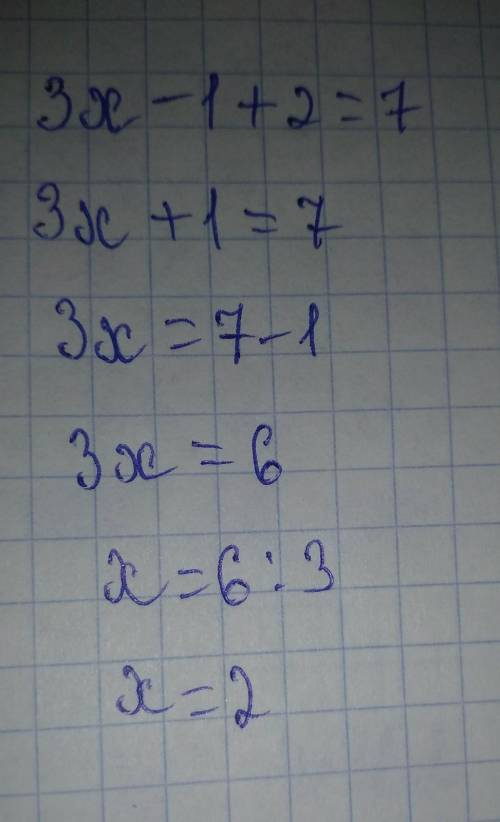 3x - 1 + 2 = 7
3x + 1 = 7
3x = 7 - 1
3x = 6
x = 6 : 3
x = 2